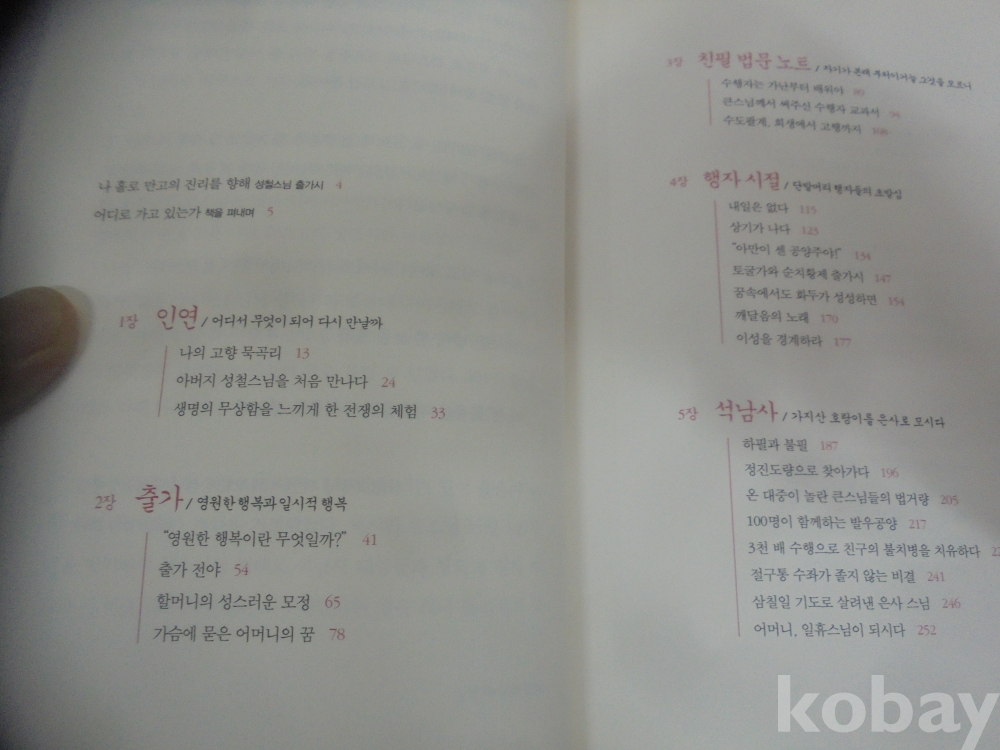 나 홀로 만고의 진리를 향해 성철스님 출가시 4
어디로 가고 있는가 책을 펴내며 5
1장 인연 / 어디서 무엇이 되어 다시 만날까
나의 고향 묵곡리 13
아버지 성철스님을 처음 만나다 24
생명의 무상함을 느끼게 한 전쟁의 체험 33
2장 출가 / 영원한 행복과 일시적 행복
“영원한 행복이란 무엇일까?” 41
출가 전야 54
할머니의 성스러운 모정 65
가슴에 묻은 어머니의 꿈 78
3장 친필 법문 노트 / 자기가 본래 부처이거늘 그것을 모르니
수행자는 가난부터 배워야 89
큰스님께서 써주신 수행자 교과서
수도팔계, 희생에서 고행까지 108
4장 행자 시절 / 단발머리 행자들의 초발심
내일은 없다 115
상기가 나다 123
“아만이 센 공양주야!” 134
토굴가와 순치황제 출가시 147
꿈속에서도 화두가 성성하면 154
깨달음의 노래 170
이성을 경계하라 177
5장 석남사 / 가지산 호랑이를 은사로 모시다
하필과 불필 187
정진도량으로 찾아가다 196
온 대중이 놀란 큰스님들의 법거량 205
100명이 함께하는 발우공양 217
3천 배 수행으로 친구의 불치병을 치유하다
절구통 수좌가 졸지 않는 비결 241
삼칠일 기도로 살려낸 은사 스님 246
어머니, 일휴스님이 되시다 252
kobay